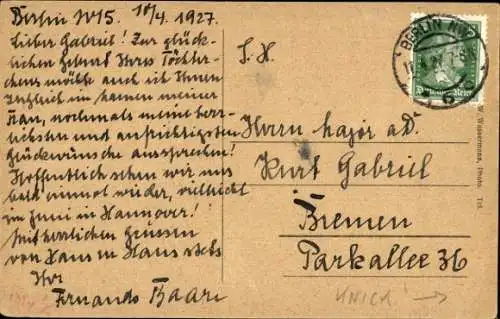 Berlin W15. 10/4. 1927.
Lieber Gabriel! Zur glück-
lichen Geburt Ihres Töchter-
chens möchte auch ich Ihnen
zugleich im Namen meiner
Frau, nochmals meine herz-
lichsten und aufrichtigsten
Glückwünsche aussprechen!
Hoffentlich sehen wir uns
bald einmal wieder, vielleicht
im Juni in Hannover!
Mit herzlichen Grüssen
von Haus zu Haus stets
Ihr
Fernando Baare
S. H.
Herrn Major a.D.
Kurt Gabriel
Bremen
Parkallee 36
KNICK →
BERLIN W
Deutsches Reich
W. Wassermann, Photo. Tel.